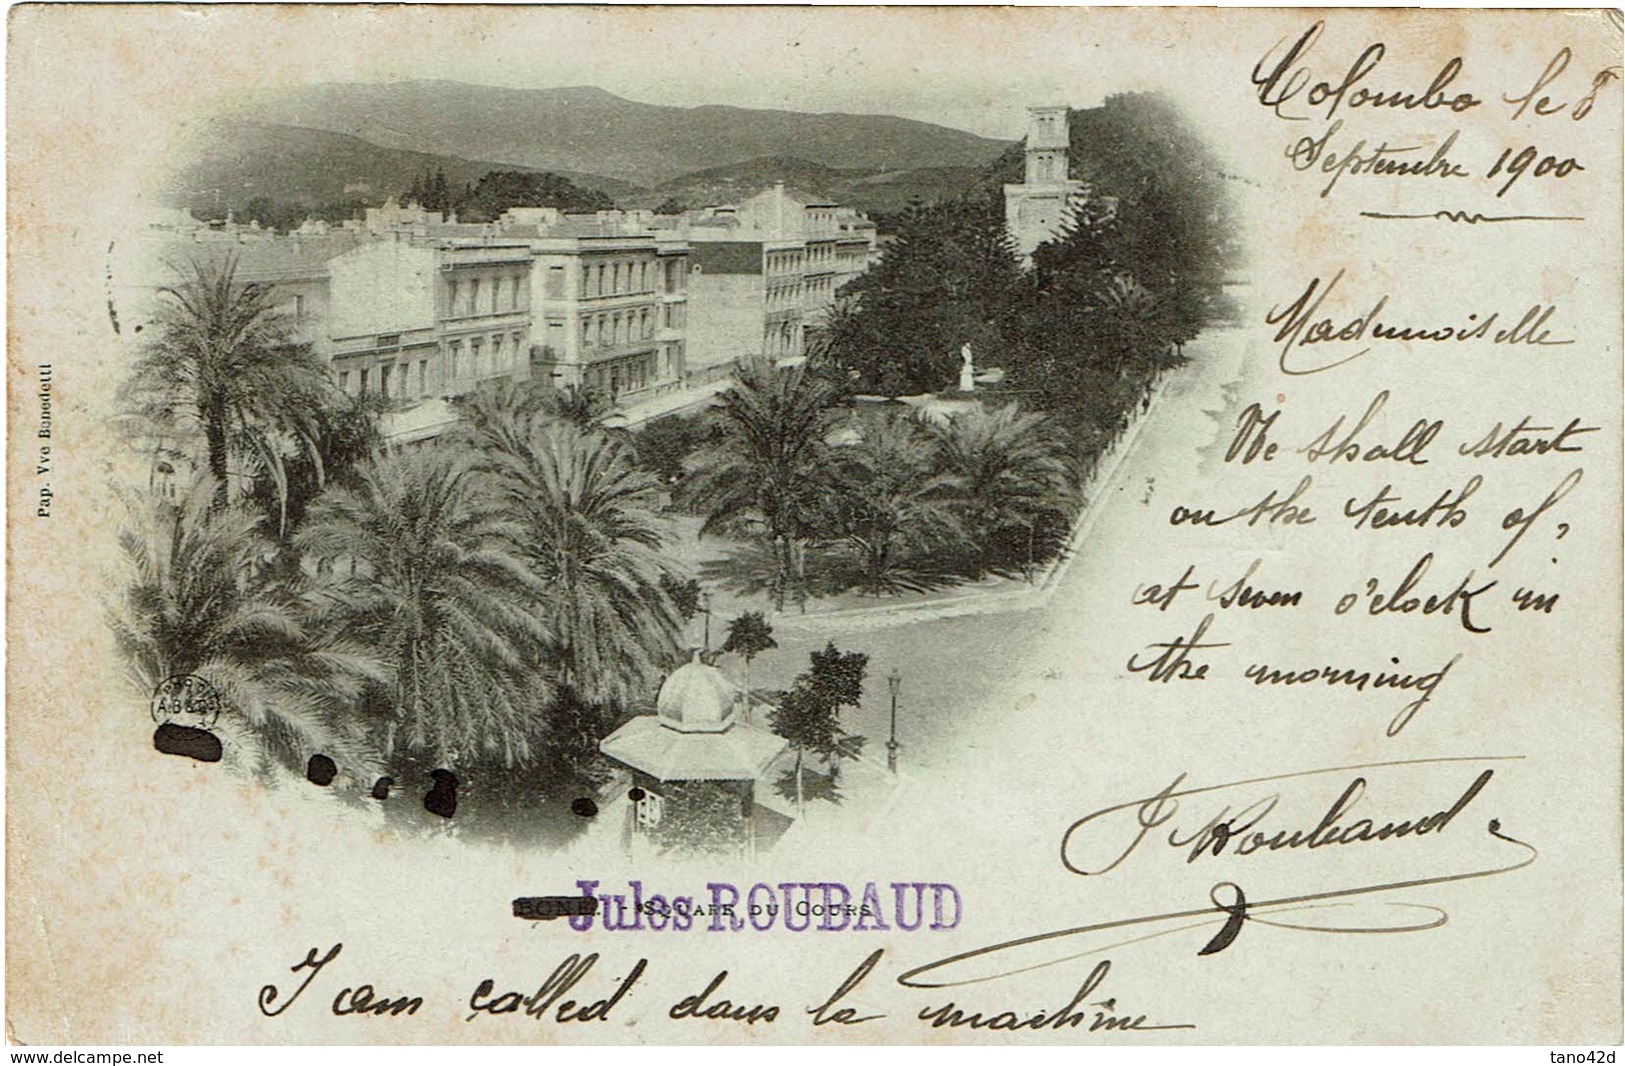 Colombo le 8
Septembre 1900
Mademoiselle
We shall start
on the tenth of,
at seven o'clock in
the morning
J Roubaud.
Pap. Vve Benedetti
A.B & C
BONE. - SQUARE DU COURS
Jules ROUBAUD
I am called dans la machine
www.delcampe.net
tano42d